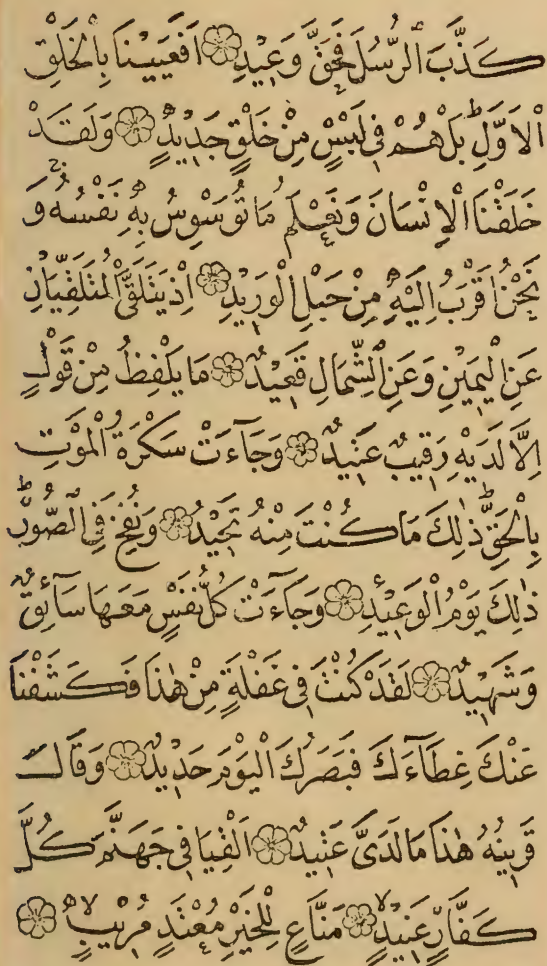 كَذَّبَ الرُّسُلَ فَحَقَّ وَعِيْدِ ۝ اَفَعَيِيْنَا بِالْخَلْقِ
الْاَوَّلِ ؕ بَلْ هُمْ فِیْ لَبْسٍ مِنْ خَلْقٍ جَدِيْدٍ ۝ وَلَقَدْ
خَلَقْنَا الْاِنْسَانَ وَنَعْلَمُ مَا تُوَسْوِسُ بِهٖ نَفْسُهُ وَ
نَحْنُ اَقْرَبُ اِلَيْهِ مِنْ حَبْلِ الْوَرِيْدِ ۝ اِذْ يَتَلَقَّى الْمُتَلَقِّيَانِ
عَنِ الْيَمِيْنِ وَعَنِ الشِّمَالِ قَعِيْدٌ ۝ مَا يَلْفِظُ مِنْ قَوْلٍ
اِلَّا لَدَيْهِ رَقِيْبٌ عَنِيْدٌ ۝ وَجَاءَتْ سَكْرَةُ الْمَوْتِ
بِالْحَقِّ ؕ ذٰلِكَ مَا كُنْتَ مِنْهُ تَحِيْدُ ۝ وَنُفِخَ فِی الصُّوْرِ ؕ
ذٰلِكَ يَوْمُ الْوَعِيْدِ ۝ وَجَاءَتْ كُلُّ نَفْسٍ مَعَهَا سَائِقٌ
وَشَهِيْدٌ ۝ لَقَدْ كُنْتَ فِیْ غَفْلَةٍ مِنْ هٰذَا فَكَشَفْنَا
عَنْكَ غِطَاءَكَ فَبَصَرُكَ الْيَوْمَ حَدِيْدٌ ۝ وَقَالَ
قَرِيْنُهُ هٰذَا مَا لَدَیَّ عَنِيْدٌ ۝ اَلْقِيَا فِیْ جَهَنَّمَ كُلَّ
كَفَّارٍ عَنِيْدٍ ۝ مَنَّاعٍ لِلْخَيْرِ مُعْتَدٍ مُرِيْبٍ ۝